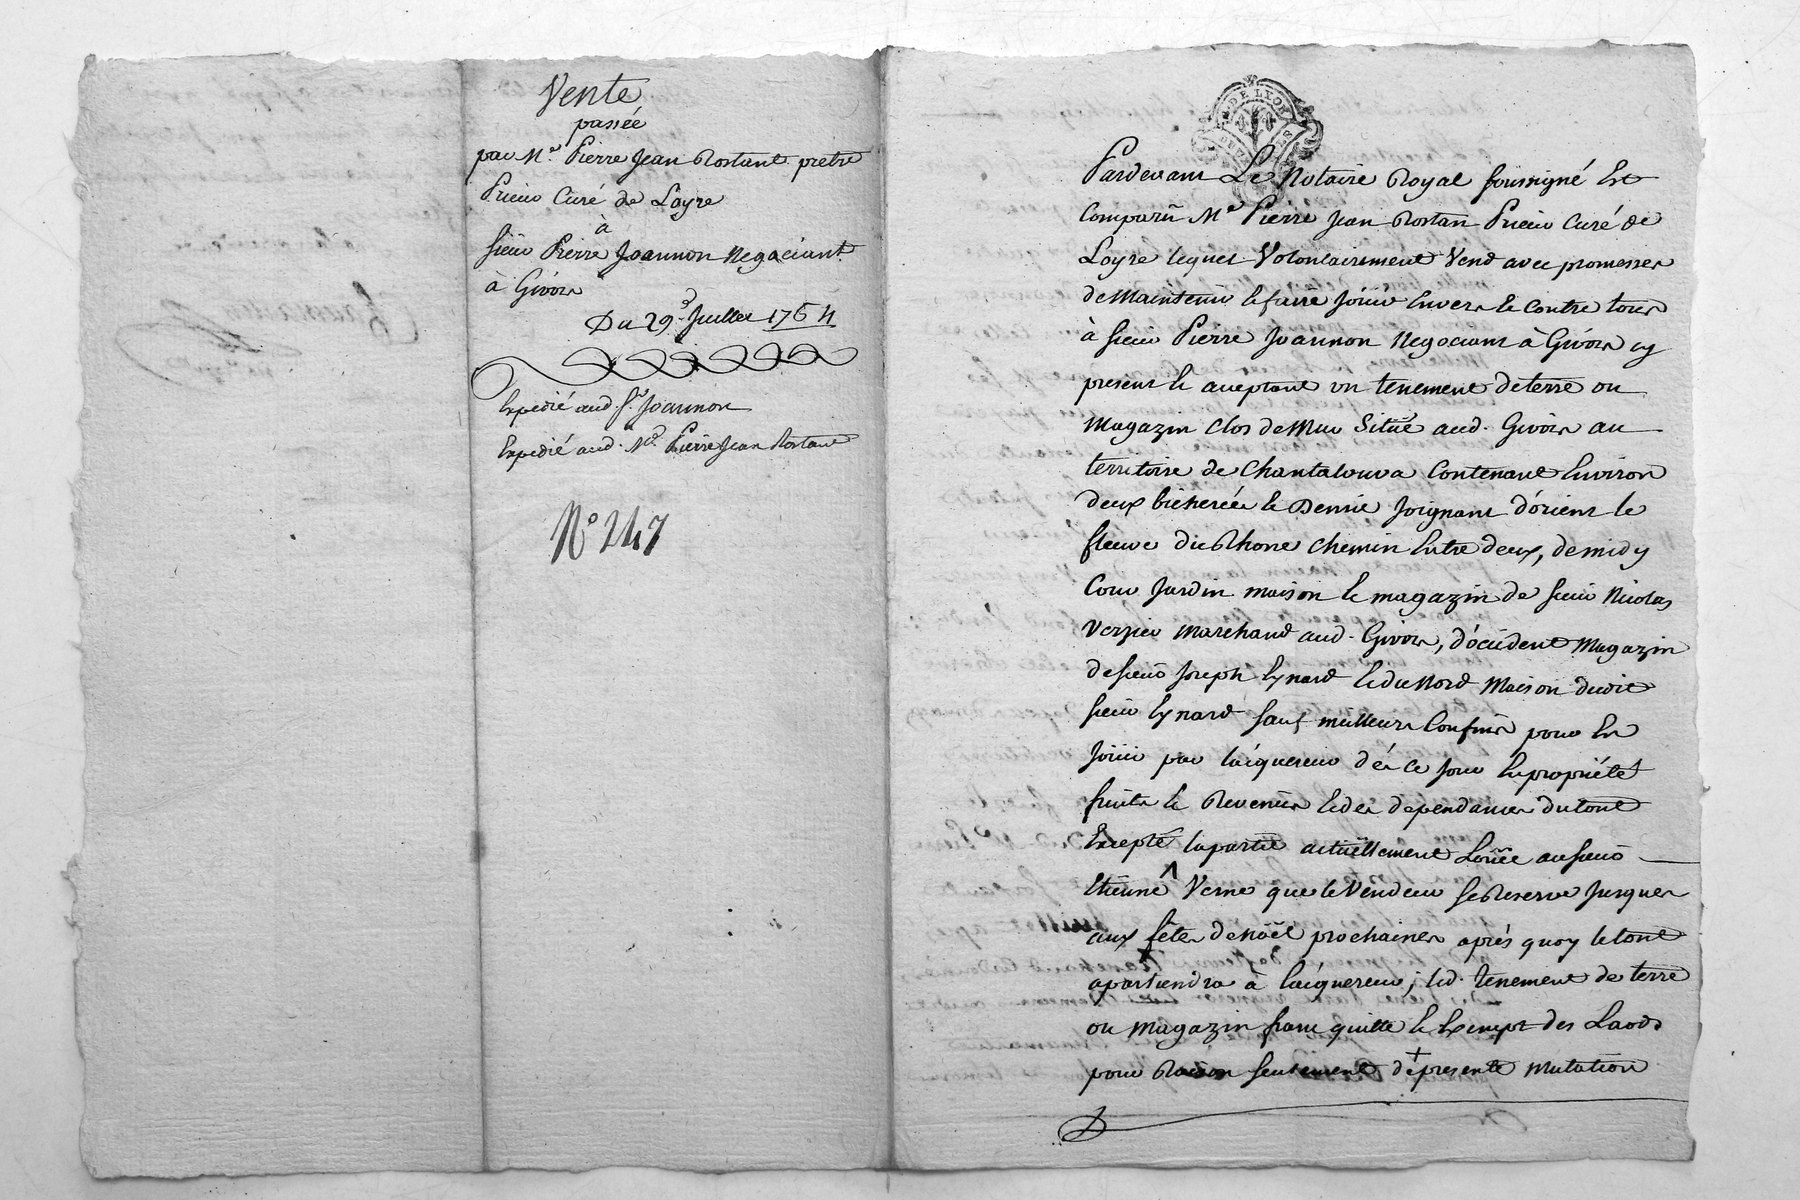 Vente
passée
par Me. Pierre Jean Rostant pretre
Prieur Curé de Loyre
à
Sieur Pierre Joannon Negociant
à Givors
Du 29e. Juillet 1764
Expedié aud. Sr. Joannon
Expedié aud. Me. Pierre Jean Rostant
N° 247
DE LYON
Pardevant Le Notaire Royal soussigné Est
Comparu Me Pierre Jean Rostan Prieur Curé de
Loyre lequel Volontairement Vend avec promesses
de Maintenir & faire Joüir Envers & Contre tous
à Sieur Pierre Joannon Negociant à Givors cy
present & aceptant un tenement de terre ou
Magazin Clos de Mur Situé aud. Givors au
territoire de Chantalouva Contenant Environ
deux bicherées & Demie Joignant d'orient le
fleuve du Rhone Chemin Entre deux, de midy
Cour Jardin maison & magazin de sieur Nicolas
Verzieu Marchand aud. Givors, d'occident Magazin
de sieur Joseph Eynard & du Nord Maison dudit
sieur Eynard sauf meilleurs Confins pour En
Joüir par l'aiquereur dés Ce Jour En propriété
fruits & Revenus & des dependances du tout
Excepté la partie actuëllement Loüée au sieur
Etienne Verne que le Vendeur se Reserve Jusques
aux fêtes de Noël prochaines après quoy le tout
apartiendra à l'aiquereur; led. tenement de terre
ou Magazin franc quitte & Exempt des Laods
pour Raison seulement de presente Mutation